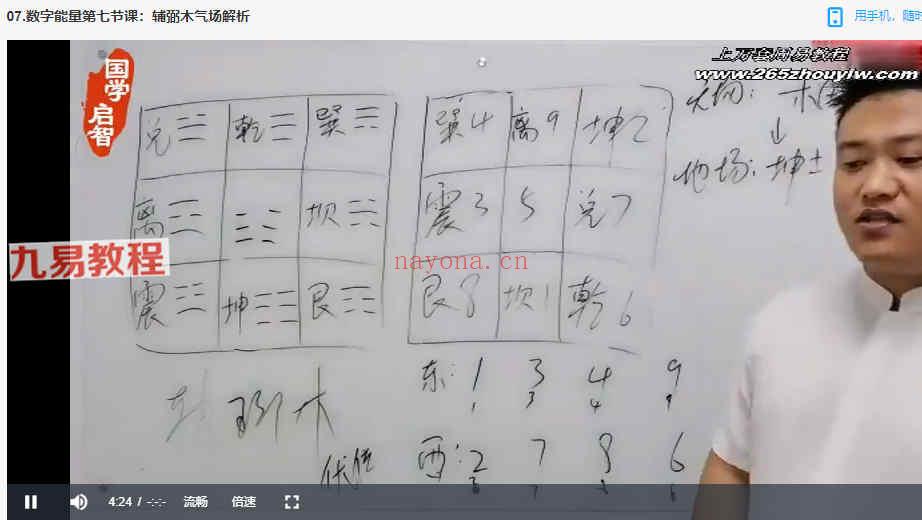 07.数字能量第七节课：辅弼木气场解析
用手机，随时
国学启智
上万套周易教程
www.265zhouyiw.com
九易教程
nayona.cn
兑 乾 巽
离 坎
震 坤 艮
巽4 离9 坤2
震3 5 兑7
艮8 坎1 乾6
天场：木
↓
地场：坤土
弼木
伏位
东：1 3 4 9
1 3 4 9
西：2 7 8 6
4:24 / -:-:-
流畅
倍速